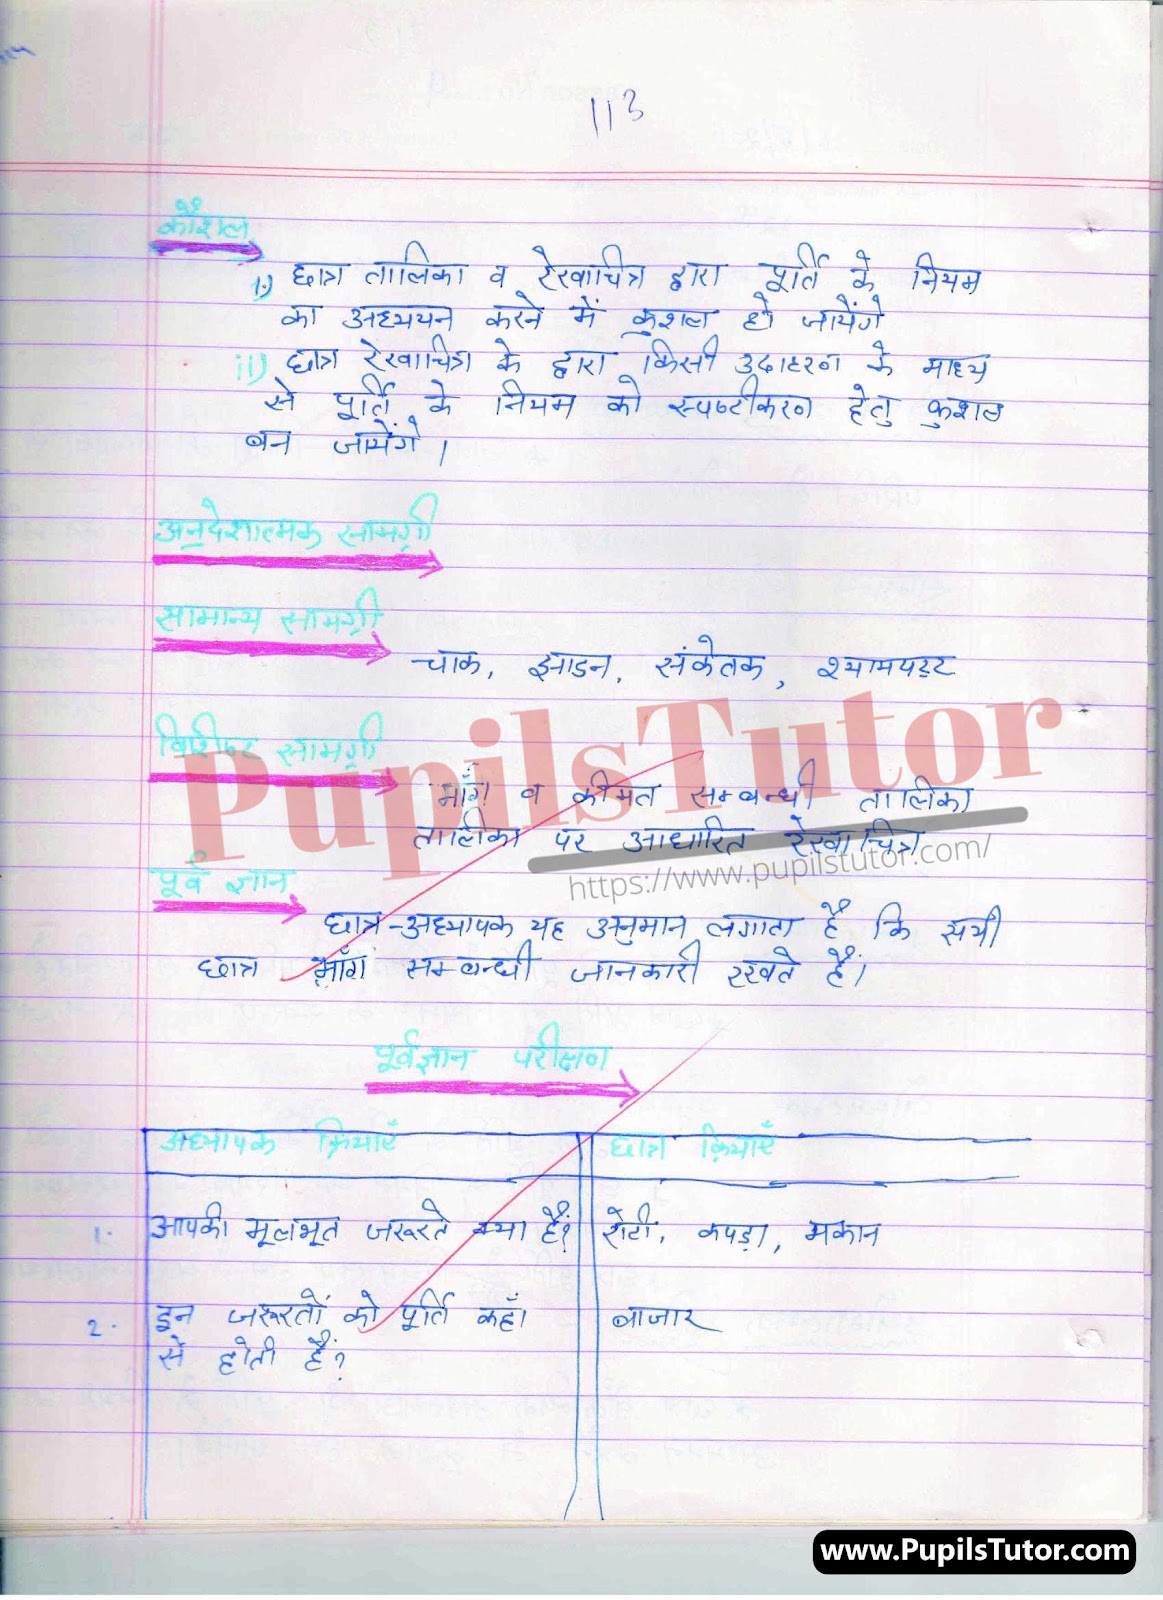 113
कौशल
i) छात्र तालिका व रेखाचित्र द्वारा पूर्ति के नियम
का अध्ययन करने में कुशल हो जायेंगे
ii) छात्र रेखाचित्र के द्वारा किसी उदाहरण के माध्य
से पूर्ति के नियम को स्पष्टीकरण हेतु कुशल
बन जायेंगे।
अनुदेशात्मक सामग्री
सामान्य सामग्री
चाक, झाडन, संकेतक, श्यामपट्ट
PupilsTutor
विशिष्ट सामग्री
माँग व कीमत सम्बन्धी तालिका
तालिका पर आधारित रेखाचित्र
https://www.pupilstutor.com/
पूर्व ज्ञान
छात्र-अध्यापक यह अनुमान लगाता है कि सभी
छात्र माँग सम्बन्धी जानकारी रखते हैं।
पूर्वज्ञान परीक्षण
अध्यापक क्रियाएँ छात्र क्रियाएँ
1. आपकी मूलभूत जरूरते क्या हैं? रोटी, कपड़ा, मकान
2. इन जरूरतों को पूर्ति कहाँ बाजार
से होती हैं?
www.PupilsTutor.com